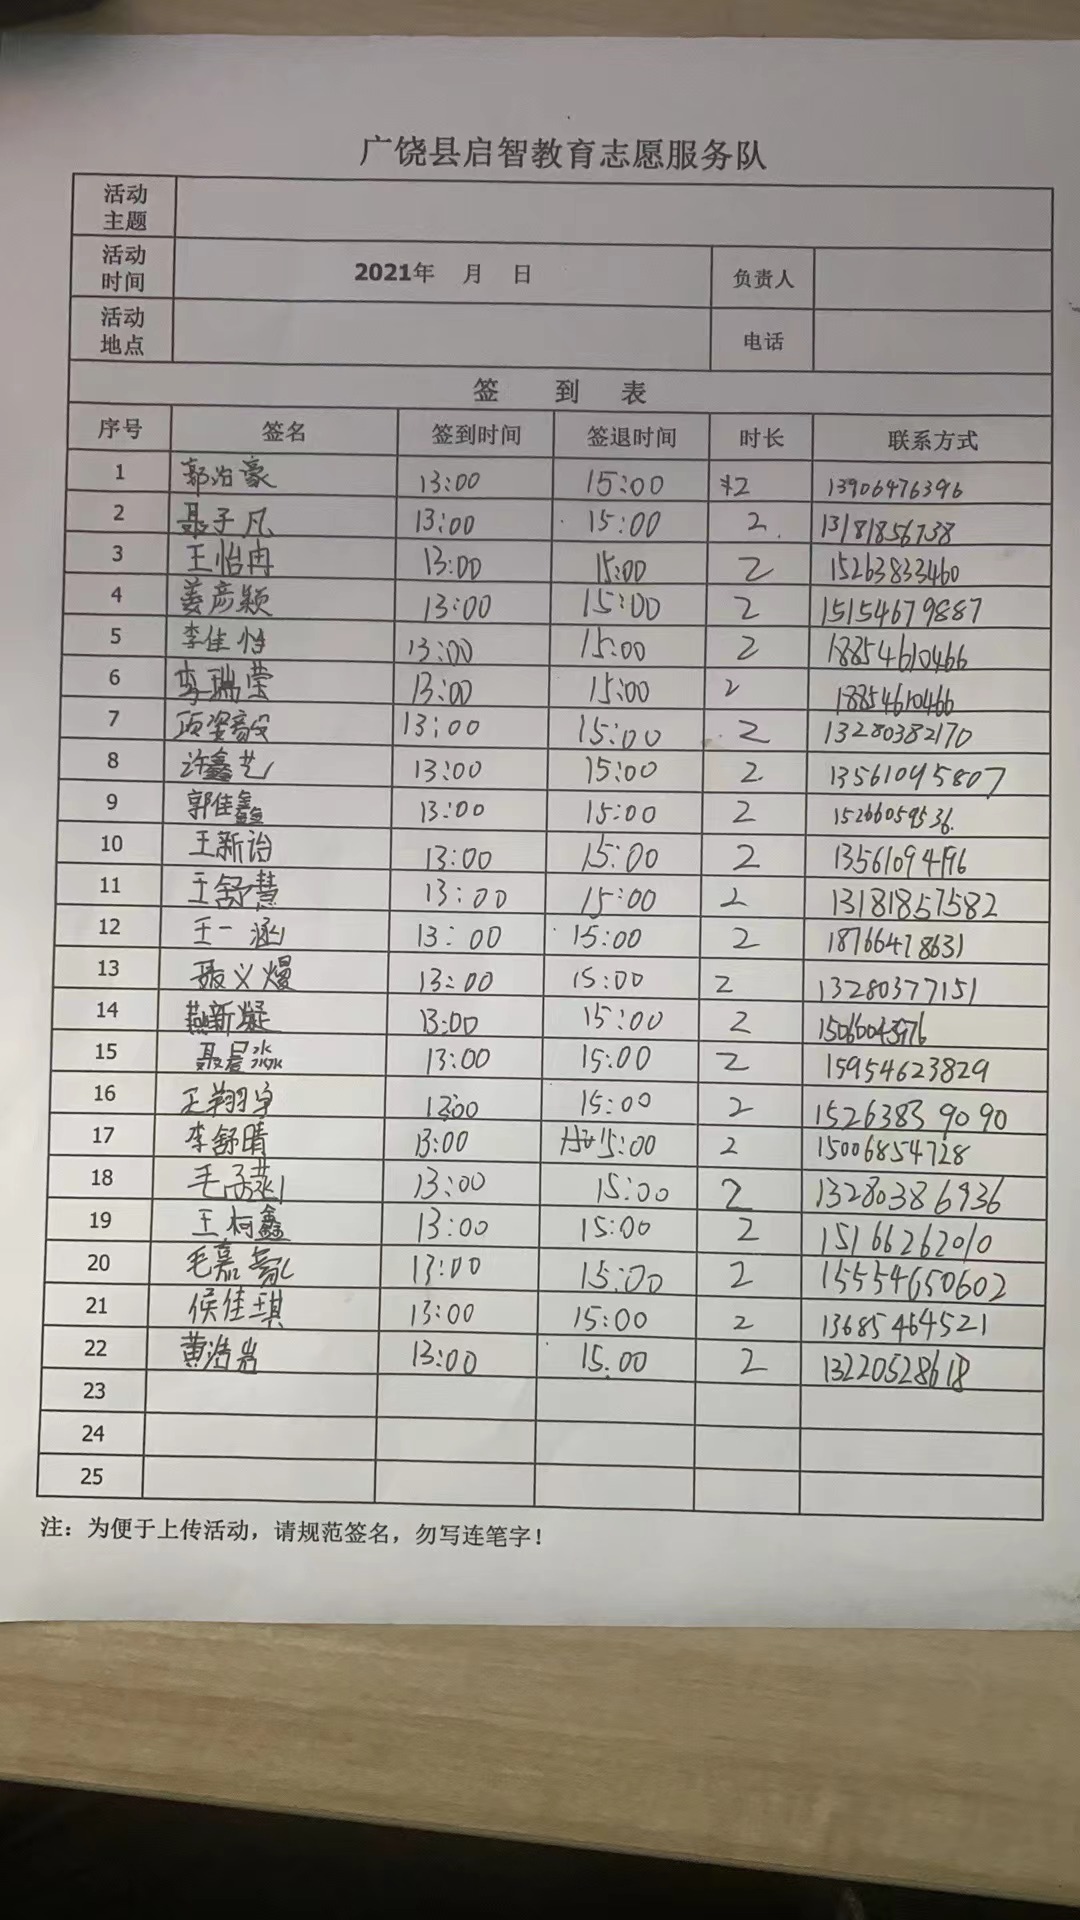 广饶县启智教育志愿服务队
活动主题
活动时间 2021年 月 日 负责人
活动地点 电话
签 到 表
序号 签名 签到时间 签退时间 时长 联系方式
1 郭治豪 13:00 15:00 2 13906476396
2 聂子凡 13:00 15:00 2 13181856738
3 王怡冉 13:00 15:00 2 15263833460
4 姜彦颖 13:00 15:00 2 15154679887
5 李佳怡 13:00 15:00 2 18854610466
6 李瑞莹 13:00 15:00 2 18854610466
7 13:00 15:00 2 13280382170
8 许鑫艺 13:00 15:00 2 13561095807
9 郭佳鑫 13:00 15:00 2 15266059536.
10 王新诒 13:00 15:00 2 13561094196
11 王舒慧 13:00 15:00 2 13181857582
12 王一涵 13:00 15:00 2 18766478631
13 聂义熳 13:00 15:00 2 13280377151
14 燕新凝 13:00 15:00 2
15 聂晨淼 13:00 15:00 2 15954623829
16 王翔宇 13:00 15:00 2 15263839090
17 李舒晴 13:00 15:00 2 15006854728
18 毛 13:00 15:00 2 13280386936
19 王柯鑫 13:00 15:00 2 15166262010
20 毛嘉 13:00 15:00 2 15554650602
21 侯佳琪 13:00 15:00 2 13685464521
22 黄浩岩 13:00 15.00 2 13220528618
23
24
25
注：为便于上传活动，请规范签名，勿写连笔字！